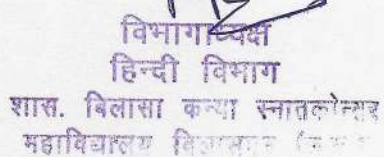 विभागाध्यक्ष
हिन्दी विभाग
शास. बिलासा कन्या स्नातकोत्तर
महाविद्यालय